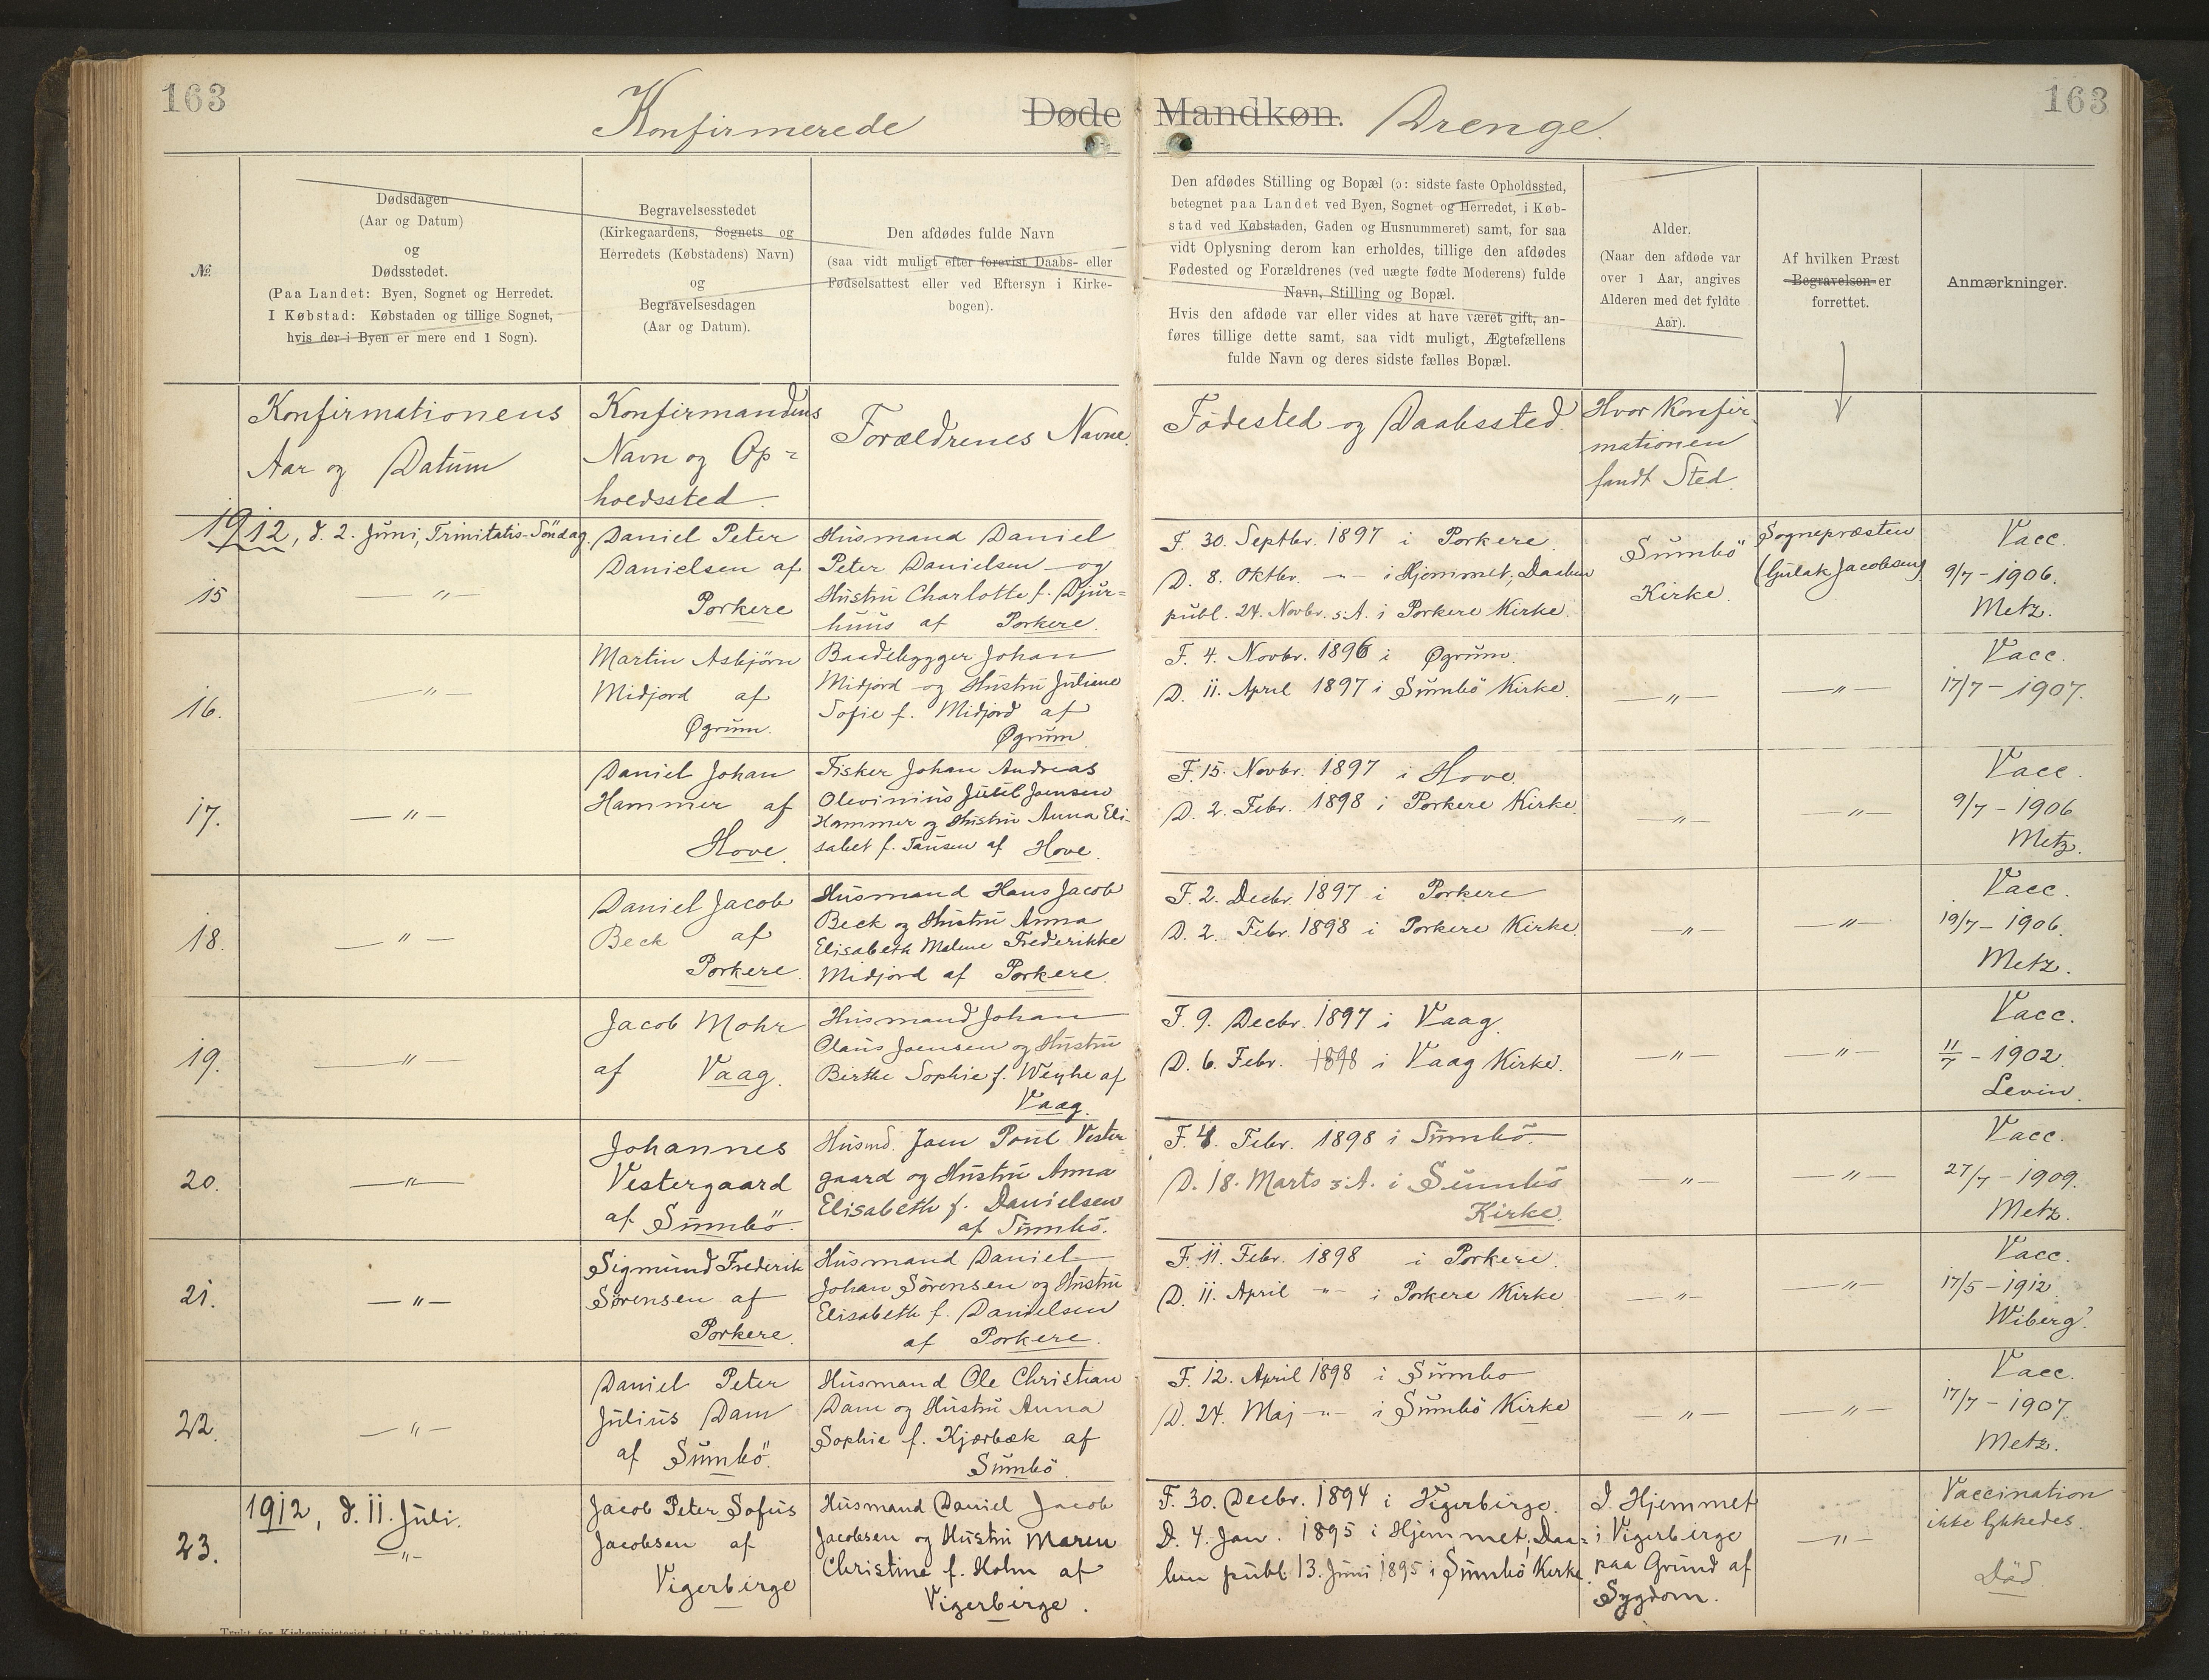 163
Konfirmerede Døde Mandkøn. Drenge.
163
№
Dødsdagen
(Aar og Datum)
og
Dødsstedet.
(Paa Landet: Byen, Sognet og Herredet.
I Købstad: Købstaden og tillige Sognet,
hvis der i Byen er mere end 1 Sogn).
Begravelsesstedet
(Kirkegaardens, Sognets og
Herredets (Købstadens) Navn)
og
Begravelsesdagen
(Aar og Datum).
Den afdødes fulde Navn
(saa vidt muligt efter forevist Daabs- eller
Fødselsattest eller ved Eftersyn i Kirke-
bogen).
Den afdødes Stilling og Bopæl (ɔ: sidste faste Opholdssted,
betegnet paa Landet ved Byen, Sognet og Herredet, i Køb-
stad ved Købstaden, Gaden og Husnummeret) samt, for saa
vidt Oplysning derom kan erholdes, tillige den afdødes
Fødested og Forældrenes (ved uægte fødte Moderens) fulde
Navn, Stilling og Bopæl.
Hvis den afdøde var eller vides at have været gift, an-
føres tillige dette samt, saa vidt muligt, Ægtefællens
fulde Navn og deres sidste fælles Bopæl.
Alder.
(Naar den afdøde var
over 1 Aar, angives
Alderen med det fyldte
Aar).
Af hvilken Præst
Begravelsen er
forrettet.
Anmærkninger.
Konfirmationens
Aar og Datum
Konfirmandens
Navn og Op=
holdssted.
Forældrenes Navne.
Fødested og Daabssted.
Hvor Konfir-
mationen
fandt Sted.
1912, d. 2. Juni, Trinitatis-Söndag.
15
— " —
Daniel Peter
Danielsen af
Porkere
Husmand Daniel
Peter Danielsen og
Hustru Charlotte f. Djur=
huus af Porkere.
F. 30. Septbr. 1897 i Porkere.
D. 8. Oktbr. -"- i Hjemmet, Daaben
publ. 24. Novbr. s. A. i Porkere Kirke.
Sumbö
Kirke.
Sognepræsten
(Gulak Jacobsen)
Vacc.
9/7 - 1906.
Metz.
16.
— " —
Martin Asbjörn
Midjord af
Øgrum.
Baadebygger Johan
Midjord og Hustru Juliane
Sofie f. Midjord af
Øgrum.
F. 4. Novbr. 1896 i Øgrum.
D. 11. April 1897 i Sumbö Kirke.
— " —
— " —
Vacc.
17/7 - 1907.
17.
— " —
Daniel Johan
Hammer af
Hove.
Fisker Johan Andreas
Olevinius Juul Joensen
Hammer og Hustru Anna Eli-
sabet f. Tausen af Hove.
F. 15. Novbr. 1897 i Hove.
D. 2. Febr. 1898 i Porkere Kirke.
— " —
— " —
Vacc.
9/7 - 1906
Metz.
18.
— " —
Daniel Jacob
Beck af
Porkere.
Husmand Hans Jacob
Beck og Hustru Anna
Elisabeth Malene Frederikke
Midjord af Porkere.
F. 2. Decbr. 1897 i Porkere
D. 2. Febr. 1898 i Porkere Kirke.
— " —
— " —
Vacc.
19/7 - 1906.
Metz.
19.
— " —
Jacob Mohr
af Vaag.
Husmand Johan
Olaus Joensen og Hustru
Birthe Sophie f. Weyhe af
Vaag.
F. 9. Decbr. 1897 i Vaag.
D. 6. Febr. 1898 i Vaag Kirke.
— " —
— " —
Vacc.
11/7 - 1902.
Levin.
20.
— " —
Johannes
Vestergaard
af Sumbö.
Husmd. Joen Poul Vester=
gaard og Hustru Anna
Elisabeth f. Danielsen
af Sumbö.
F. 4. Febr. 1898 i Sumbö.
D. 18. Marts s. A. i Sumbö
Kirke.
— " —
— " —
Vacc.
27/7 - 1909.
Metz.
21.
— " —
Sigmund Frederik
Sörensen af
Porkere.
Husmand Daniel
Johan Sörensen og Hustru
Elisabeth f. Danielsen
af Porkere.
F. 11. Febr. 1898 i Porkere.
D. 11. April -"- i Porkere Kirke
— " —
— " —
Vacc.
17/5 - 1912.
Wiberg?
22.
— " —
Daniel Peter
Julius Dam
af Sumbö.
Husmand Ole Christian
Dam og Hustru Anna
Sophie f. Kjærbæk af
Sumbö.
F. 12. April 1898 i Sumbo
D. 24. Maj -"- i Sumbö Kirke
— " —
— " —
Vacc.
17/7 - 1907.
Metz.
1912, d. 11. Juli.
23.
— " —
Jacob Peter Sofus
Jacobsen af
Vigerbirge
Husmand Daniel Jacob
Jacobsen og Hustru Maren
Christine f. Holm af
Vigerbirge.
F. 30. Decbr. 1894 i Vigerbirge.
D. 4. Jan. 1895 i Hjemmet, Daa=
ben publ. 13. Juni 1895 i Sumbö Kirke.
I Hjemmet
i Vigerbirge
paa Grund af
Sygdom.
— " —
Vaccination
ikke lykkedes.
Död